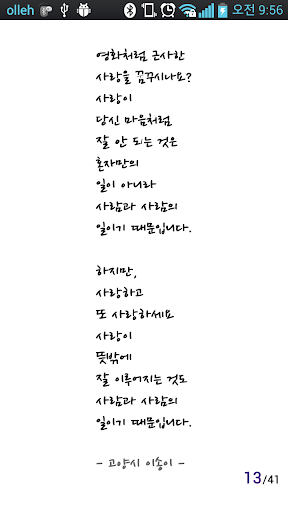 olleh 오전 9:56
영화처럼 근사한
사랑을 꿈꾸시나요?
사랑이
당신 마음처럼
잘 안 되는 것은
혼자만의
일이 아니라
사람과 사람의
일이기 때문입니다.
하지만,
사랑하고
또 사랑하세요
사랑이
뜻밖에
잘 이루어지는 것도
사람과 사람의
일이기 때문입니다.
- 고양시 이송이 -
13/41